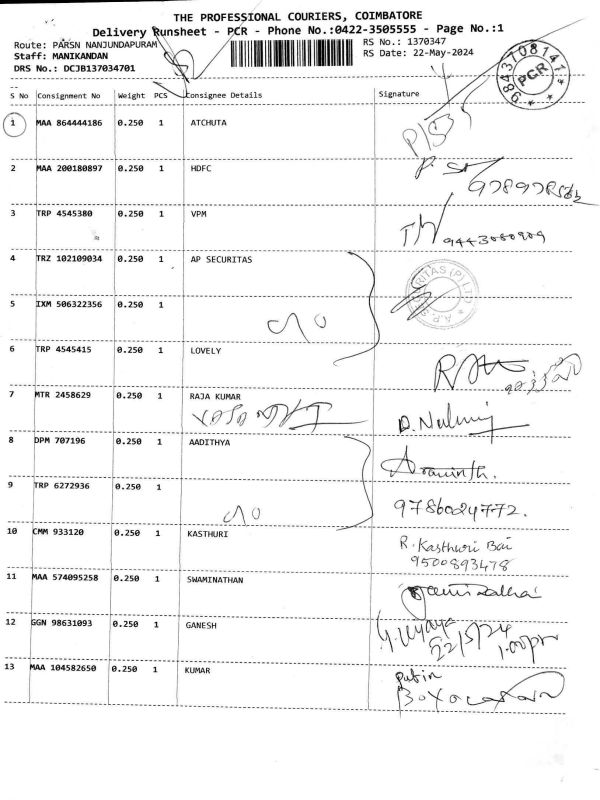 THE PROFESSIONAL COURIERS, COIMBATORE
Delivery Runsheet - PCR - Phone No.:0422-3505555 - Page No.:1
Route: PARSN NANJUNDAPURAM
RS No.: 1370347
Staff: MANIKANDAN
RS Date: 22-May-2024
DRS No.: DCJB137034701
9843708141
PCR
S No Consignment No Weight PCS Consignee Details Signature
1 MAA 864444186 0.250 1 ATCHUTA
2 MAA 200180897 0.250 1 HDFC
3 TRP 4545380 0.250 1 VPM
9443080909
4 TRZ 102109034 0.250 1 AP SECURITAS
5 IXM 506322356 0.250 1
6 TRP 4545415 0.250 1 LOVELY
7 MTR 2458629 0.250 1 RAJA KUMAR
8 DPM 707196 0.250 1 AADITHYA
Aravinth.
9 TRP 6272936 0.250 1
9786024772.
10 CMM 933120 0.250 1 KASTHURI
R. Kasthuri Bai
9500893478
11 MAA 574095258 0.250 1 SWAMINATHAN
12 GGN 98631093 0.250 1 GANESH
22/5/24
1.00pm
13 MAA 104582650 0.250 1 KUMAR